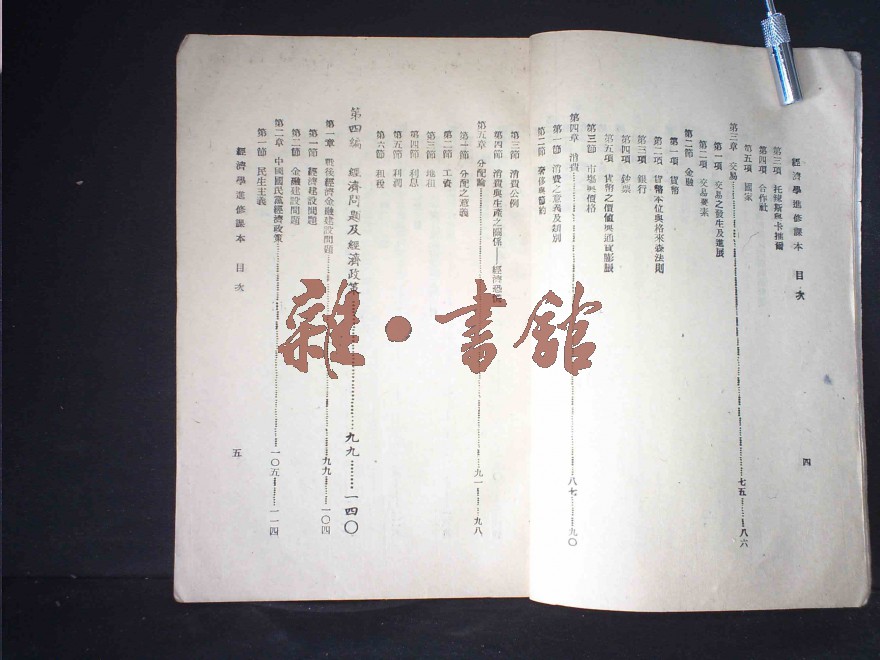 經濟學進修課本 目次
四
第三項 托辣斯與卡推爾
第四項 合作社
第五項 國家
第三章 交易……七五……八六
第一項 交易之發生及進展
第二項 交易要素
第二節 金融
第一項 貨幣
第二項 貨幣本位與格來森法則
第三項 銀行
第四項 鈔票
第五項 貨幣之價值與通貨膨脹
第三節 市場與價格
第四章 消費……八七……九〇
第一節 消費之意義及類別
第二節 奢侈與節約
第三節 消費公例
第四節 消費與生產之關係——經濟恐慌
第五章 分配論……九一……九八
第一節 分配之意義
第二節 工資
第三節 地租
第四節 利息
第五節 利潤
第六節 租稅
第四編 經濟問題及經濟政策……九九……一四〇
第一章 戰後經濟金融建設問題……九九……一〇四
第一節 經濟建設問題
第二節 金融建設問題
第二章 中國國民黨經濟政策……一〇五……一一四
第一節 民生主義
經濟學進修課本 目次
五
雜·書館